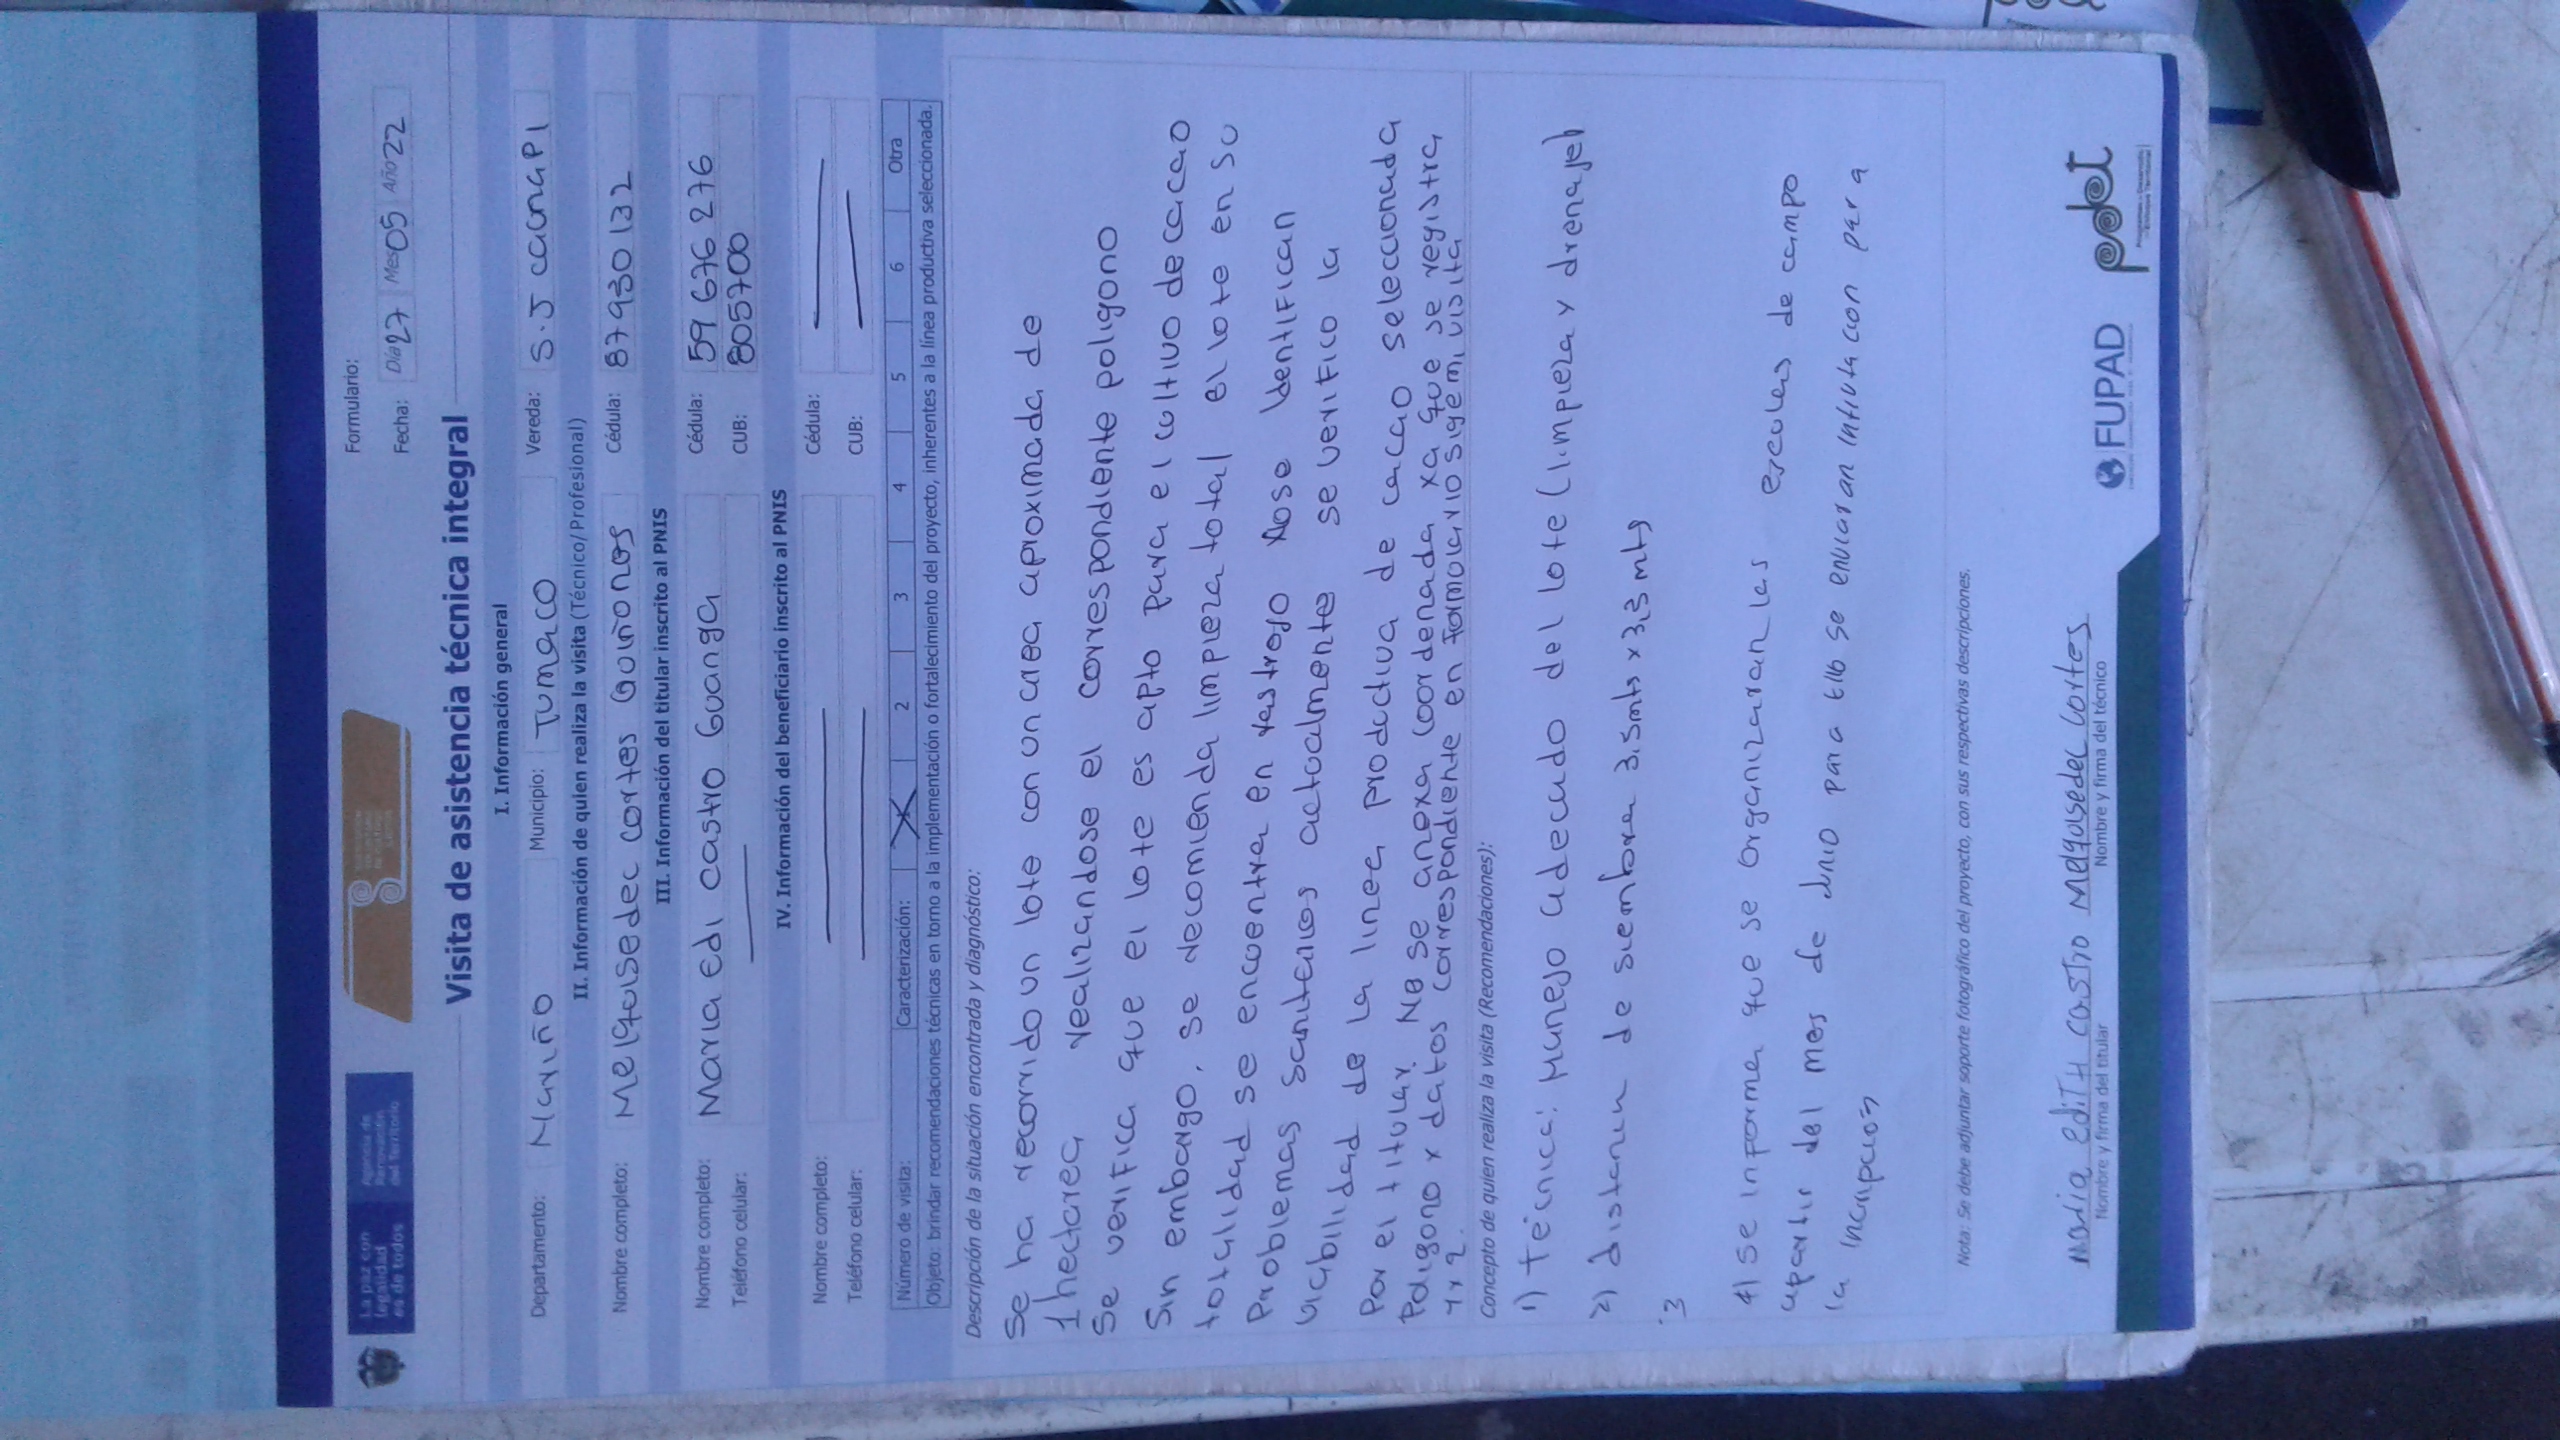 La paz con
legalidad
es de todos
Agencia de
Renovación
del Territorio
Formulario:
Fecha: Día 27 Mes 05 Año 22
Visita de asistencia técnica integral
I. Información general
Departamento: Nariño Municipio: Tumaco Vereda: S.J caunapi
II. Información de quien realiza la visita (Técnico/Profesional)
Nombre completo: Melquisedec cortes Quiñones Cédula: 87930132
III. Información del titular inscrito al PNIS
Nombre completo: Maria edi castro Guanga Cédula: 59 676 276
Teléfono celular: CUB: 805700
IV. Información del beneficiario inscrito al PNIS
Nombre completo: Cédula:
Teléfono celular: CUB:
Número de visita: Caracterización: X 2 3 4 5 6 Otra
Objeto: brindar recomendaciones técnicas en torno a la implementación o fortalecimiento del proyecto, inherentes a la línea productiva seleccionada.
Descripción de la situación encontrada y diagnóstico:
Se ha recorrido un lote con un area aproximada de
1 hectarea realizandose el correspondiente poligono
Se verifica que el lote es apto para el cultivo de cacao
Sin embargo, se recomienda limpieza total el lote en su
totalidad se encuentra en rastrojo Nose identifican
Problemas sanitarios actualmente se verifico la
viabilidad de la linea productiva de cacao seleccionada
Por el titular. NB se anexa coordenada xa que se registra
Poligono x datos correspondiente en formulario sigem, visita
1 x 2.
Concepto de quien realiza la visita (Recomendaciones):
1) técnica: Manejo adecuado del lote (limpieza y drenaje)
2) distancia de siembra 3.5mts x 3,5 mts
3
4) se informa que se organizaran las escuelas de campo
apartir del mes de Junio para ello se enviaran invitacion para
la
Nota: Se debe adjuntar soporte fotográfico del proyecto, con sus respectivas descripciones.
maria ediTH castro Melquisedec Cortes
Nombre y firma del titular Nombre y firma del técnico
FUPAD
pdet